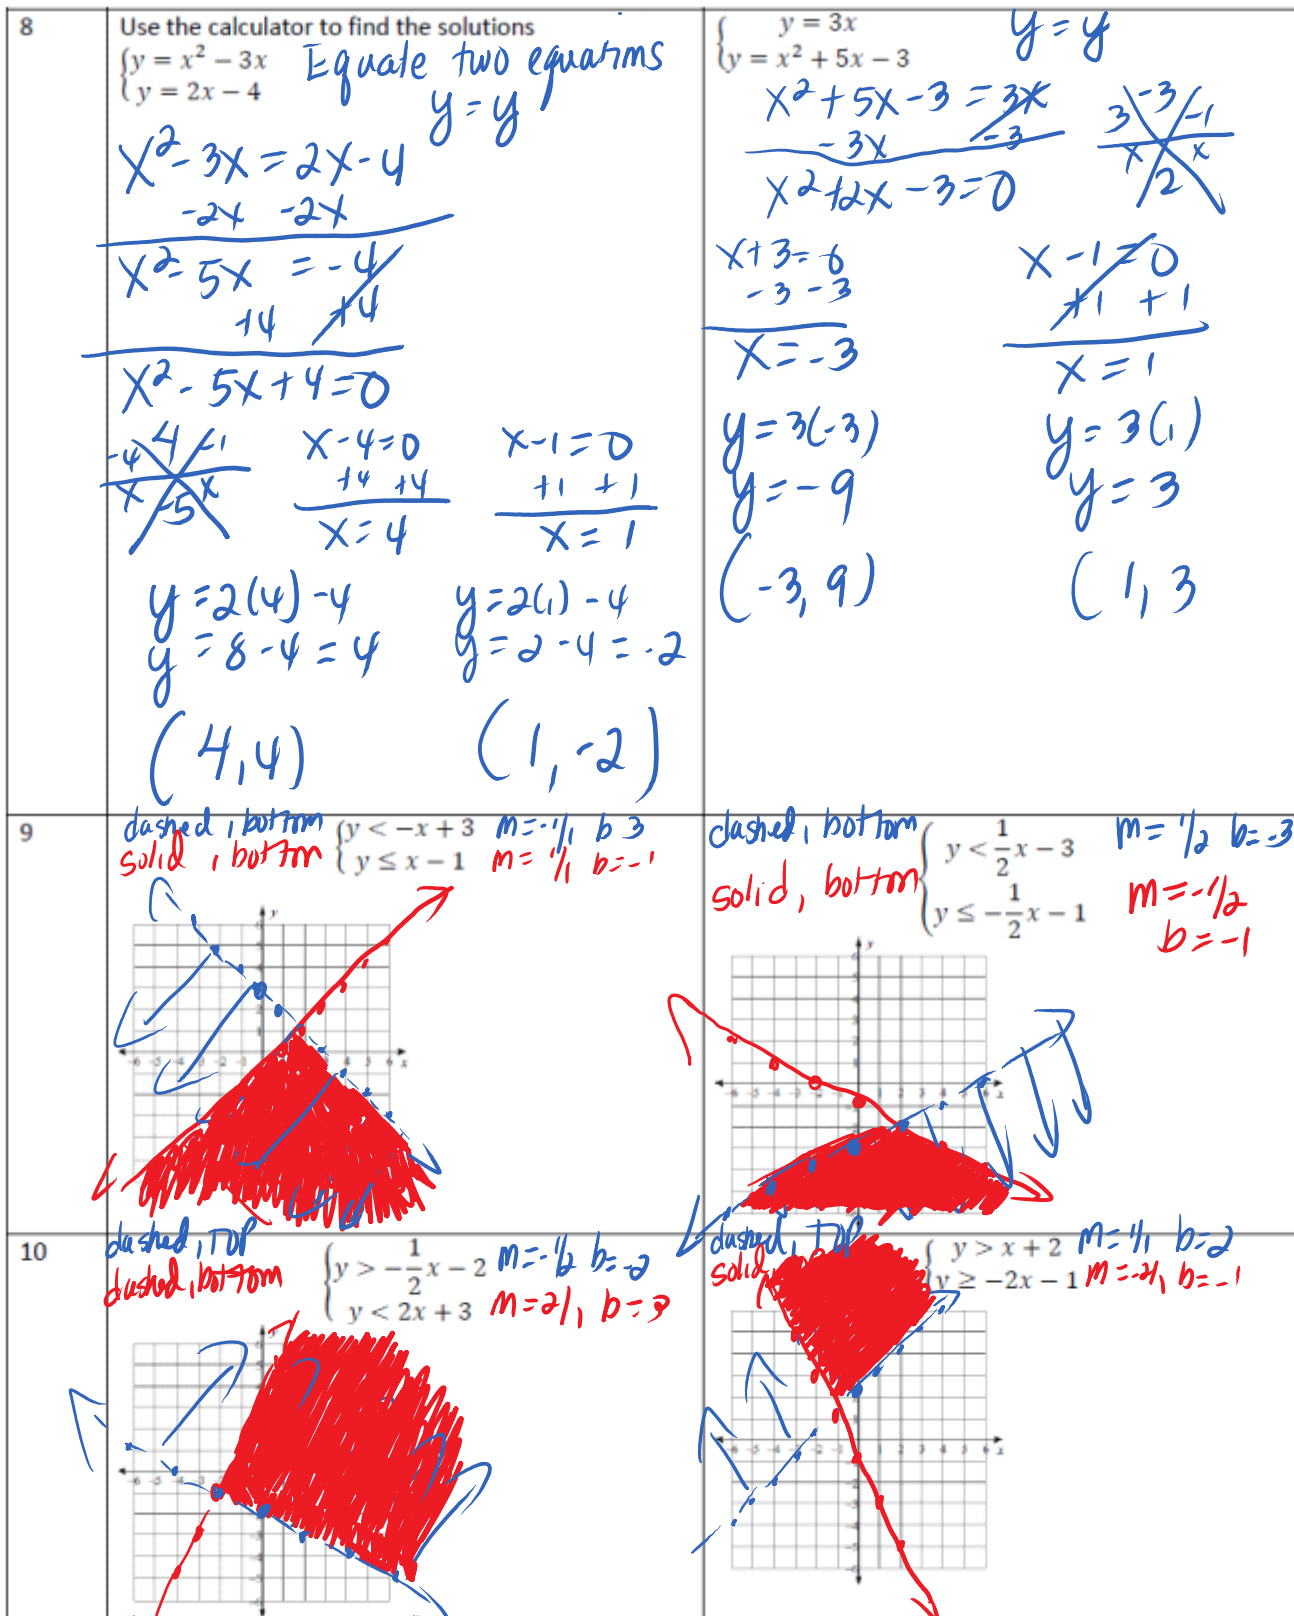 8
Use the calculator to find the solutions
{y = x² − 3x
{y = 2x − 4
Equate two equations
y = y
x² - 3x = 2x - 4
-2x -2x
x² - 5x = -4
+4 +4
x² - 5x + 4 = 0
4
-4 -1
x x
-5
x - 4 = 0
+4 +4
x = 4
x - 1 = 0
+1 +1
x = 1
y = 2(4) - 4
y = 8 - 4 = 4
(4, 4)
y = 2(1) - 4
y = 2 - 4 = -2
(1, -2)
{y = 3x
{y = x² + 5x − 3
y = y
x² + 5x - 3 = 3x
-3x -3
x² + 2x - 3 = 0
-3
3 -1
x x
2
x + 3 = 0
-3 -3
x = -3
y = 3(-3)
y = -9
(-3, 9)
x - 1 = 0
+1 +1
x = 1
y = 3(1)
y = 3
(1, 3
9
dashed, bottom
solid, bottom
{y < −x + 3
{y ≤ x − 1
m = -1/1 b 3
m = 1/1 b = -1
dashed, bottom
solid, bottom
{y < 1/2 x − 3
{y ≤ − 1/2 x − 1
m = 1/2 b = -3
m = -1/2
b = -1
10
dashed, TOP
dashed, bottom
{y > − 1/2 x − 2
{y < 2x + 3
m = -1/2 b = -2
m = 2/1 b = 3
dashed, TOP
solid,
{y > x + 2
{y ≥ −2x − 1
m = 1/1 b = 2
m = -2/1 b = -1